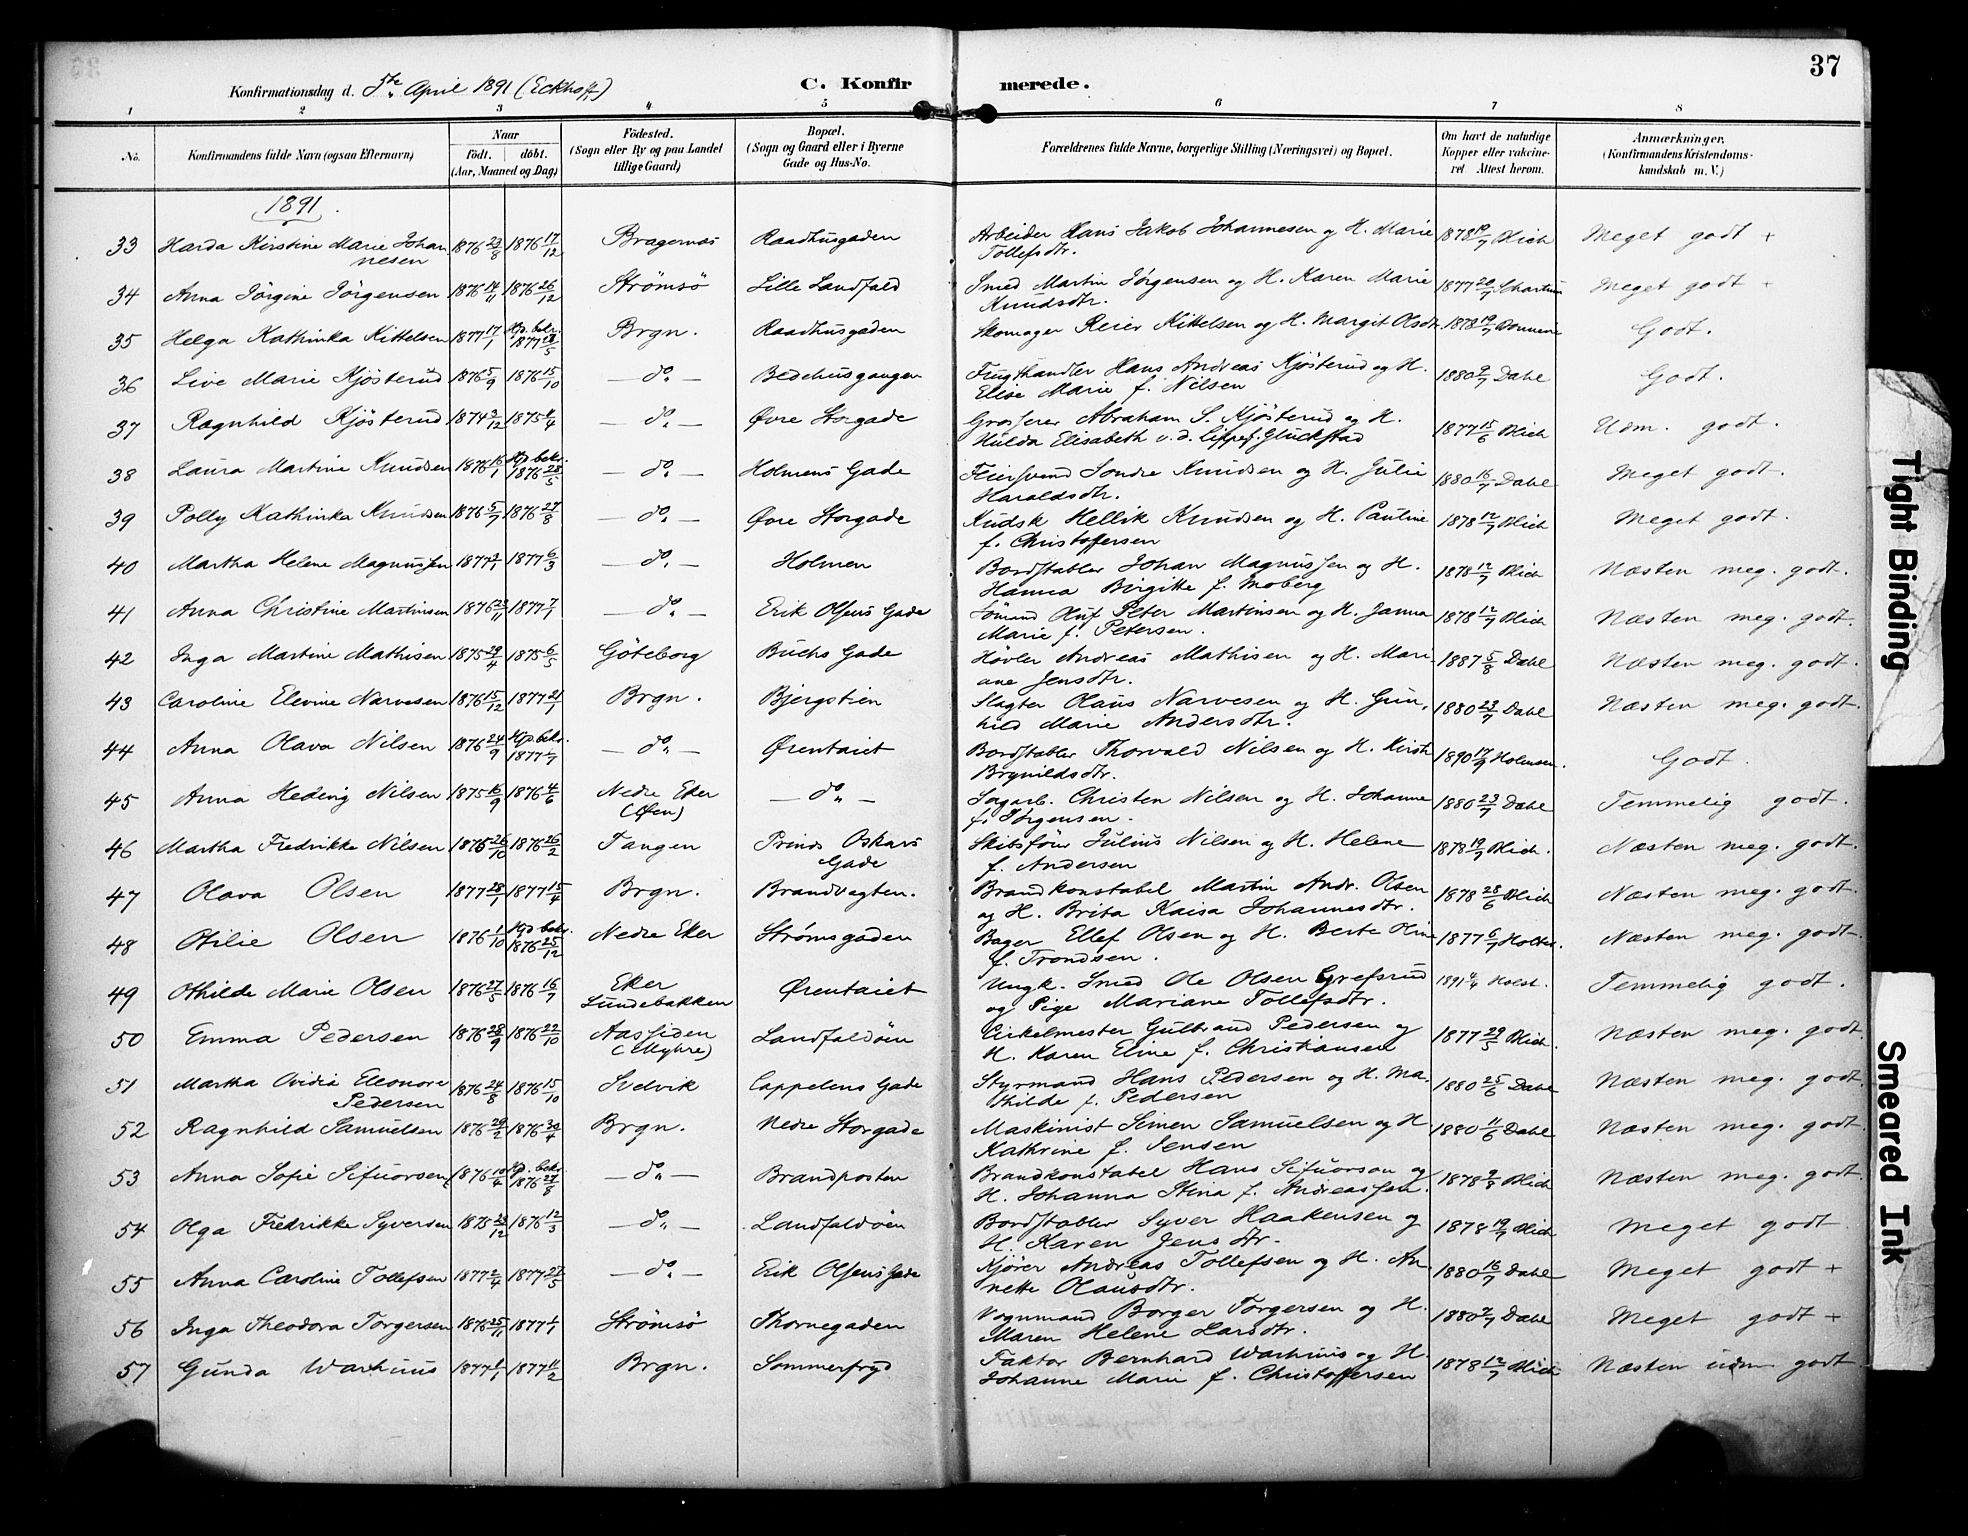 37
Konfirmationsdag d. 5te April 1891 (Eckhoff)
C. Konfirmerede.
1 2 3 4 5 6 7 8
No.
Konfirmandens fulde Navn (ogsaa Efternavn)
Naar
födt. döbt.
(Aar, Maaned og Dag)
Födested.
(Sogn eller By og paa Landet
tillige Gaard)
Bopæl.
(Sogn og Gaard eller i Byerne
Gade og Hus-No.
Forældrenes fulde Navne, borgerlige Stilling (Næringsvei) og Bopæl.
Om havt de naturlige
Kopper eller vakcine-
ret Attest herom.
Anmærkninger.
(Konfirmandens Kristendoms-
kundskab m. V.)
1891.
33 Harda Kirstine Marie Johan 1876 23/8 1876 17/12 Bragernæs Raadhusgaden Arbeider Hans Jakob Johannesen og H. Marie 1878 19/7 Blich Meget godt +
nesen Tollefsdtr.
34 Anna Jörgine Jörgensen 1876 14/11 1876 26/12 Strömsö Lille Landfald Smed Martin Jörgensen og H. Karen Marie 1877 20/7 Schartum Meget godt +
Knudsdtr.
35 Helga Kathinka Kittelsen 1877 17/1 Hp. bekr. 1877 28/5 Brgn. Raadhusgaden Skomager Reier Kittelsen og H. Margit Olsdt. 1878 19/7 Godt.
36 Live Marie Kjösterud 1876 5/9 1876 15/10 — do — Bedehusgangen Frugthandler Hans Andreas Kjösterud og H. 1880 9/7 Dahl Godt.
Elise Marie f. Nilsen
37 Ragnhild Kjösterud 1874 3/12 1875 4/4 — do — Øvre Storgade Grosserer Abraham S. Kjösterud og H. 1877 15/6 Blich Udm. godt.
Hulda Elisabeth v. d. Lippe f. Glückstad
38 Laura Martine Knudsen 1876 16/1 Hp. bekr. 1876 28/5 — do — Holmens Gade Feiersvend Söndre Knudsen og H. Julie 1880 16/7 Dahl Meget godt.
Haraldsdtr.
39 Polly Kathinka Knudsen 1876 5/7 1876 27/8 — do — Øvre Storgade Kudsk Hellik Knudsen og H. Pauline 1878 12/7 Blich Meget godt.
f. Christoffersen
40 Martha Helene Magnussen 1877 3/1 1877 6/3 — do — Holmen Bordstabler Johan Magnussen og H. 1878 12/7 Blich Næsten meg. godt.
Hanna Birgitte f. Moberg
41 Anna Christine Martinsen 1876 23/11 1877 7/1 — do — Erik Olsens Gade Sömand Oluf Peter Martinsen og H. Janna 1878 12/7 Blich Næsten meg. godt.
Marie f. Petersen.
42 Inga Martine Mathisen 1875 29/4 1875 6/5 Göteborg Buchs Gade Høvler Andreas Mathisen og H. Mari 1887 5/8 Dahl Næsten meg. godt.
ane Jensdtr.
43 Caroline Elevine Narvesen 1876 15/12 1877 21/1 Brgn. Bjergstien Slagter Olaus Narvesen og H. Gun, 1880 23/7 Dahl Næsten meg. godt.
hild Marie Andersdtr.
44 Anna Olava Nilsen 1876 24/9 Hp. bekr. 1877 1/7 — do — Ørentaiet Bordstabler Thorvald Nilsen og H. Kirsti 1890 17/9 Holmsen. Godt.
Brynildsdtr.
45 Anna Hedvig Nilsen 1875 16/9 1876 4/6 Nedre Eker — do — Sagarb. Christen Nilsen og H. Johanne 1880 23/7 Dahl Temmelig godt.
f. Jørgensen.
46 Martha Fredrikke Nilsen 1875 26/10 1876 26/2 Tangen Prinds Oskars Skibsfører Julius Nilsen og H. Helene 1878 19/7 Blich. Næsten meg. godt.
Gade f. Andersen
47 Olava Olsen 1877 28/1 1877 15/4 Brgn. Brandvagten. Brandkonstabel Martin Andr. Olsen 1878 28/6 Blich Næsten meg. godt.
og H. Brita Kaisa Johannesdtr.
48 Otilie Olsen 1876 1/10 Hp. bekr. 1876 25/12 Nedre Eker Strömsgaden Bager Ellef Olsen og H. Berte Oline 1877 6/7 Holter. Næsten meg. godt.
f. Trondsen.
49 Othilde Marie Olsen 1876 27/5 1876 16/7 Eker Ørentaiet Ungk. Smed Ole Olsen Grefsrud 1891 4/4 Holst. Temmelig godt.
Lundebakken og Pige Mariane Tollefsdtr.
50 Emma Pedersen 1876 28/9 1876 22/10 Aassiden Landfaldöen Cirkelmester Gulbrand Pedersen og 1877 29/5 Blich. Næsten meg. godt
(Myhre) H. Karen Eline f. Christiansen
51 Martha Ovidia Eleonore 1876 24/8 1876 15/10 Svelvik Cappelens Gade Styrmand Hans Pedersen og H. Ma- 1880 25/6 Dahl Næsten meg. godt.
Pedersen thilde f. Pedersen
52 Ragnhild Samuelsen 1876 29/2 1876 30/4 Brgn. Nedre Storgade Maskinist Simen Samuelsen og H 1880 11/6 Dahl Næsten meg. godt.
Kathrine f. Jensen
53 Anna Sofie 1876 10/4 Hp. bekr. 1876 27/8 — do — Brandposten Brandkonstabel Hans og 1878 9/8 Blich Næsten meg. godt.
H. Johanna Stina f. Andreassen.
54 Olga Fredrikke Syversen 1875 23/12 1876 12/3 — do — Landfaldöen Bordstabler Syver Haakensen og 1878 19/7 Blich Meget godt
H. Karen Jensdtr.
55 Anna Caroline Tollefsen 1877 2/4 1877 27/5 — do — Erik Olsens Gade Kjører Andreas Tollefsen og H. An 1880 16/7 Dahl Meget godt +
nette Olausdtr.
56 Inga Theodora Torgersen 1876 25/11 1877 1/1 Strömsö Thornegaden Vognmand Borger Torgersen og H. 1880 2/7 Dahl Meget godt +
Maren Helene Larsdtr.
57 Gunda Warhuus 1877 1/1 1877 11/2 Brgn. Sommerfryd Faktor Bernhard Warhuus og H. 1878 12/7 Blich Næsten udm godt
Johanne Marie f. Christoffersen
Tight Binding
Smeared Ink